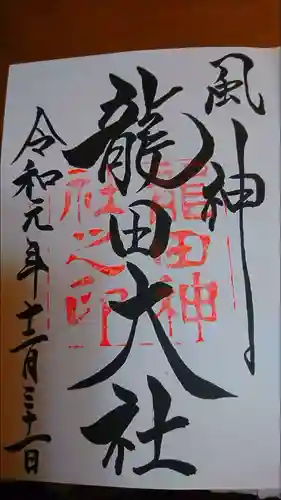 風神
龍田大社
龍田神
社之印
令和元年十二月三十一日